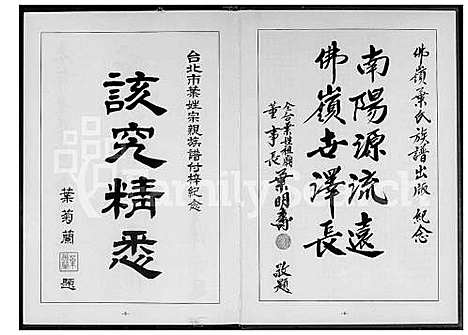 佛嶺葉氏族譜出版紀念
南陽源流遠
佛嶺世澤長
全台葉姓祖廟
董事長 葉明壽 敬題
台北市葉姓宗親族譜付梓紀念
該究精悉
葉菊蘭 題
FamilySearch